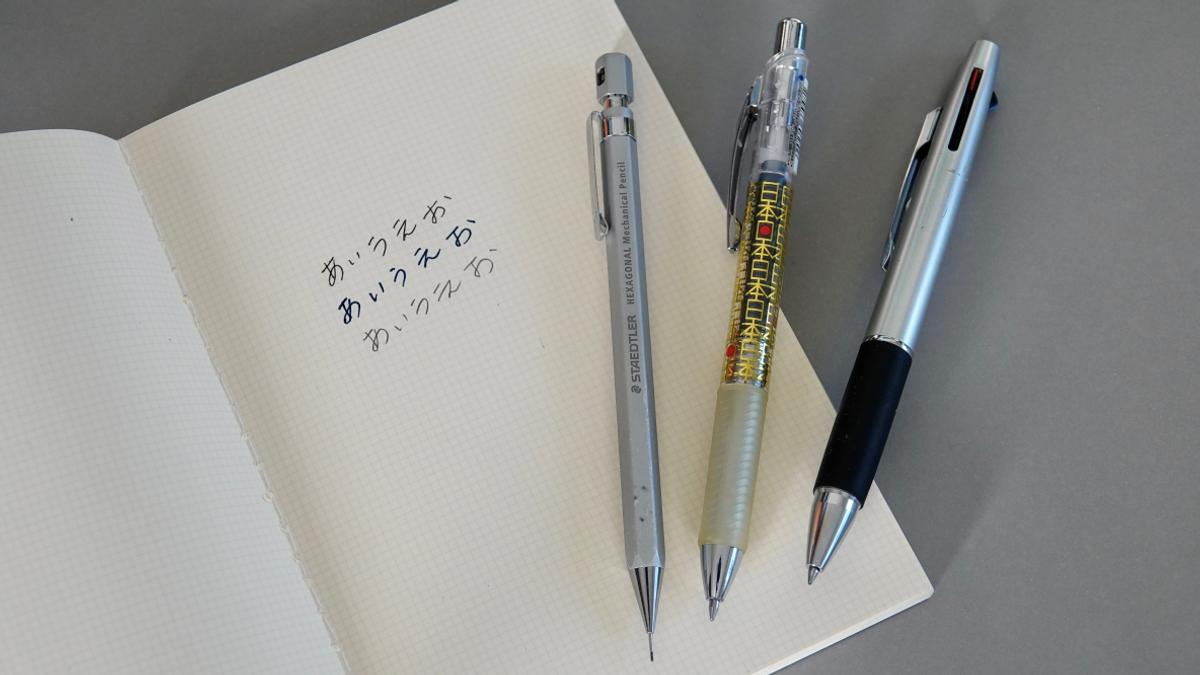 あいうえお
あいうえお
あいうえお
STAEDTLER HEXAGONAL Mechanical Pencil
日本日本日本日本日本